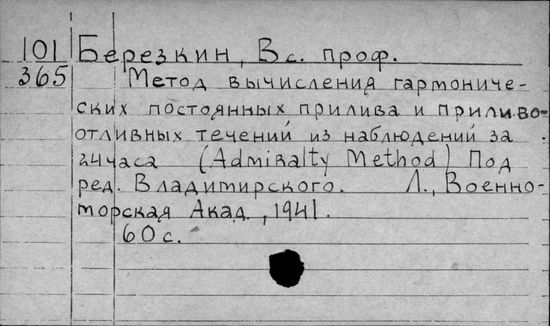 101 Березкин, Вс. проф.
365 Метод вычисления гармониче-
ских постоянных прилива и приливо-
отливных течений из наблюдений за
24 часа (Admiralty Method) Под
ред. Владимирского. Л., Военно-
морская Акад., 1941.
60 с.